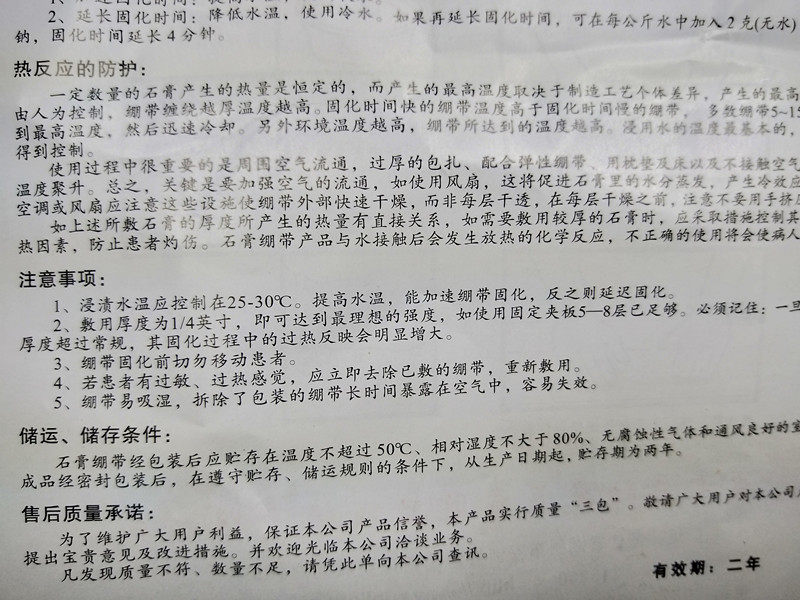 2、延长固化时间：降低水温，使用冷水。如果再延长固化时间，可在每公斤水中加入2克(无水)
钠，固化时间延长4分钟。
热反应的防护：
一定数量的石膏产生的热量是恒定的，而产生的最高温度取决于制造工艺个体差异，产生的最高
由人为控制、绷带缠绕越厚温度越高。固化时间快的绷带温度高于固化时间慢的绷带， 多数绷带5~15
到最高温度，然后迅速冷却。另外环境温度越高，绷带所达到的温度越高。浸用水的温度最基本的，
得到控制。
使用过程中很重要的是周围空气流通，过厚的包扎、配合弹性绷带、用枕垫及床以及不接触空气
温度聚升。总之，关键是要加强空气的流通，如使用风扇，这将促进石膏里的水分蒸发，产生冷效应
空调或风扇应注意这些设施使绷带外部快速干燥，而非每层干透，在每层干燥之前，注意不要用手挤
如上述所敷石膏的厚度所产生的热量有直接关系，如需要敷用较厚的石膏时，应采取措施控制其
热因素，防止患者灼伤。石膏绷带产品与水接触后会发生放热的化学反应，不正确的使用将会使病人
注意事项：
1、浸渍水温应控制在25-30℃。提高水温，能加速绷带固化，反之则延迟固化。
2、敷用厚度为1/4英寸，即可达到最理想的强度，如使用固定夹板5—8层已足够。必须记住：一旦
厚度超过常规，其固化过程中的过热反映会明显增大。
3、绷带固化前切勿移动患者。
4、若患者有过敏、过热感觉，应立即去除已敷的绷带，重新敷用。
5、绷带易吸湿，拆除了包装的绷带长时间暴露在空气中，容易失效。
储运、储存条件：
石膏绷带经包装后应贮存在温度不超过50℃、相对湿度不大于80%、无腐蚀性气体和通风良好的室
成品经密封包装后，在遵守贮存、储运规则的条件下，从生产日期起，贮存期为两年。
售后质量承诺：
为了维护广大用户利益，保证本公司产品信誉，本产品实行质量“三包”。敬请广大用户对本公司
提出宝贵意见及改进措施。并欢迎光临本公司洽谈业务。
凡发现质量不符、数量不足，请凭此单向本公司查讯。
有效期：二年